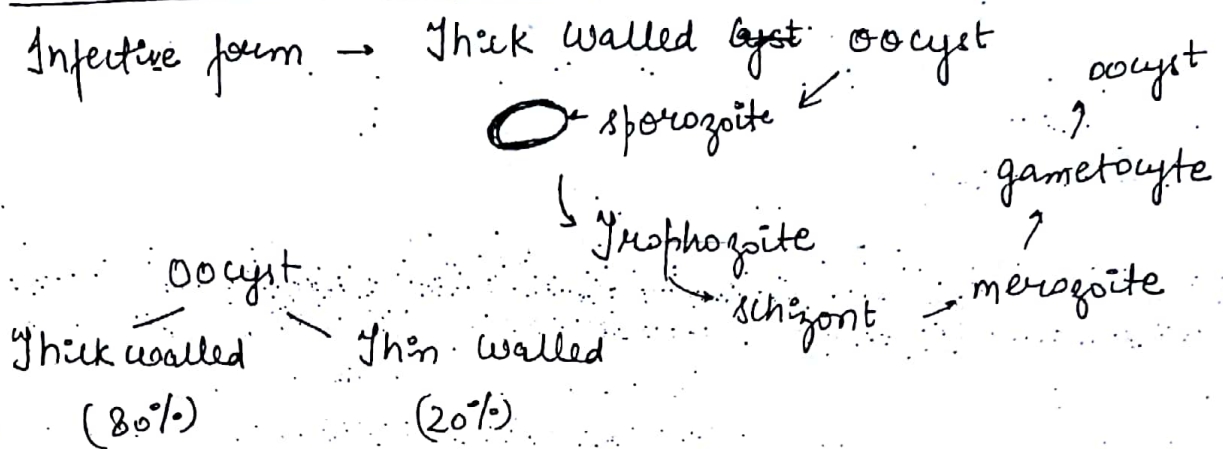 Infective form → Thick walled cyst oocyst
sporozoite
Trophozoite
schizont → merozoite
gametocyte
oocyst
oocyst
Thick walled Thin walled
(80%) (20%)